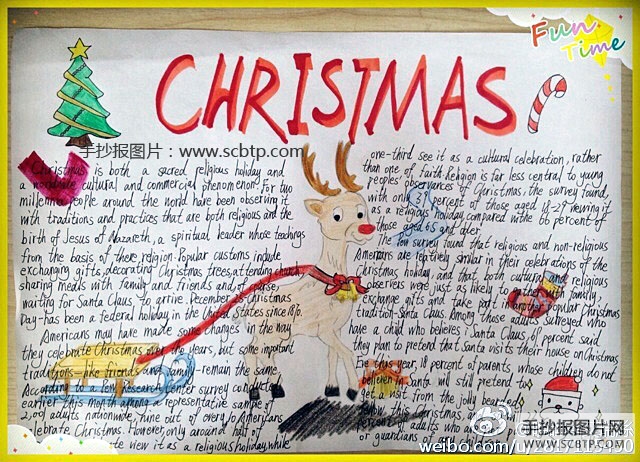 Fun
Time
CHRISTMAS
手抄报图片：www.scbtp.com
Christmas is both a sacred religious holiday and
a worldwide cultural and commercial phenomenon. For two
millennia people around the world have been observing it
with traditions and practices that are both religious and the
birth of Jesus of Nazareth, a spiritual leader whose teachings
from the basis of there religion. Popular customs include
exchanging gifts, decorating Christmas trees, attending church,
sharing meals with family and friends and, of course,
waiting for Santa Claus to arrive. December 25-Christmas
Day-has been a federal holiday in the United States since 1870.
Americans may have made some changes in the way
they celebrate Christmas over the years, but some important
traditions - like friends and family - remain the same.
According to a Pew Research Center survey conducted
earlier this month among a representative sample of
adults nationwide, nine out of Americans
celebrate Christmas. However, only around half of
view it as a religious holiday, while
one-third see it as a cultural celebration, rather
than one of faith. Religion is far less central to young
peoples observances of Christmas, the survey found,
with only 39 percent of those aged 18-29 viewing it
as a religious holiday compared withe 66 percent of
those aged 65 and older.
The Pew survey found that religious and non-religious
Americans are relatively similar in their celebrations of the
Christmas holiday, and that both cultural and religious
observers were just as likely to gather with family,
exchange gifts and take part in another popular Christmas
tradition-Santa Claus. Among those adults surveyed who
have a child who believes in Santa Claus, percent said
they plan to pretend that Santa visits their house on Christmas
Eve this year, 18 percent of parents whose children do not
believe in Santa will still pretend to
get a visit from the jolly bearded
this Christmas.
percent of adults who
or guardians of any children
手抄报图片
WWW.SCBTP.COM
weibo.com/u/